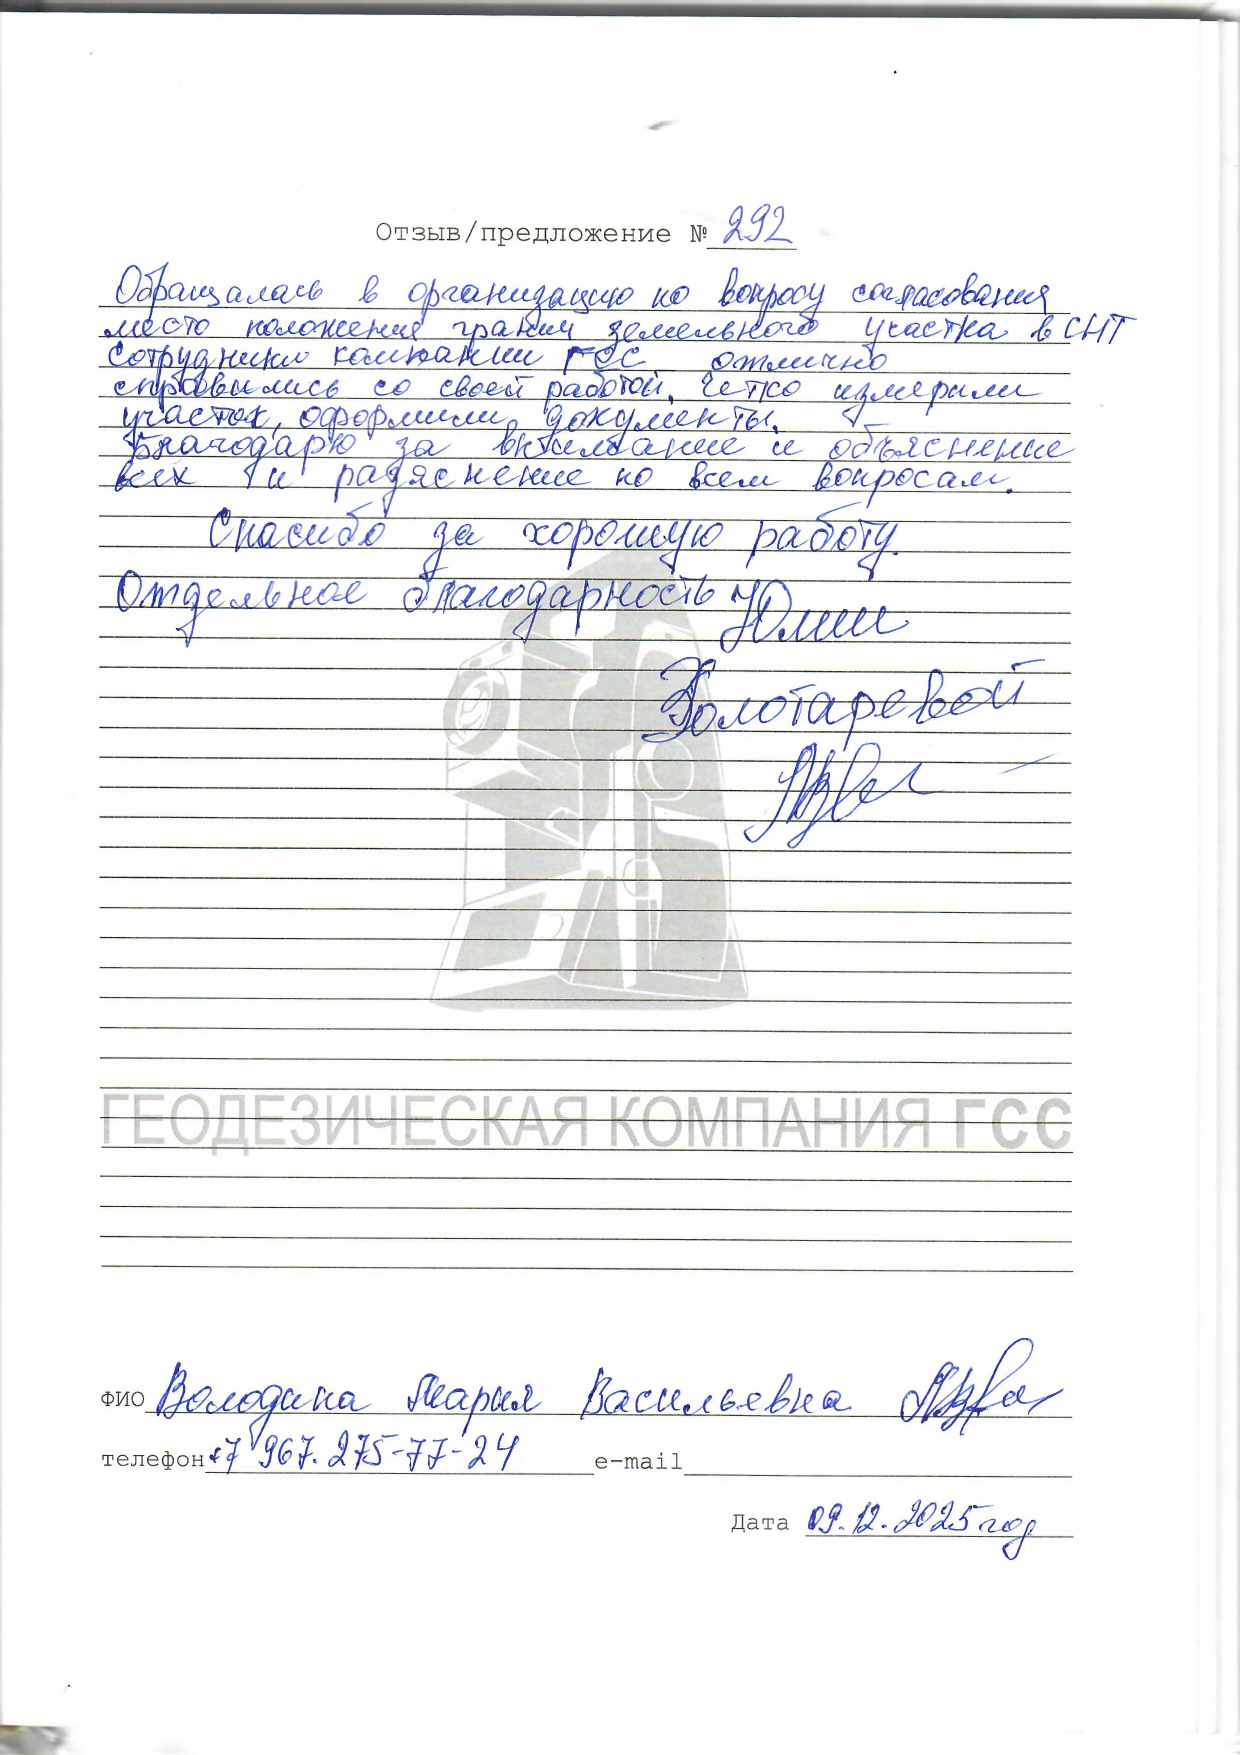 Отзыв/предложение № 292
Обращалась в организацию по вопросу согласования
место положения границ земельного участка в СНТ
Сотрудники компании ГСС отлично
справились со своей работой. Четко измерили
участок, оформили документы.
Благодарю за внимание и объяснение
всех и разяснение по всем вопросам.
Спасибо за хорошую работу.
Отдельное благодарность Юлии
Золотаревой
ГЕОДЕЗИЧЕСКАЯ КОМПАНИЯ ГСС
ФИО Володина Мария Васильевна
телефон +7 967.275-77-24 e-mail
Дата 09.12.2025 год